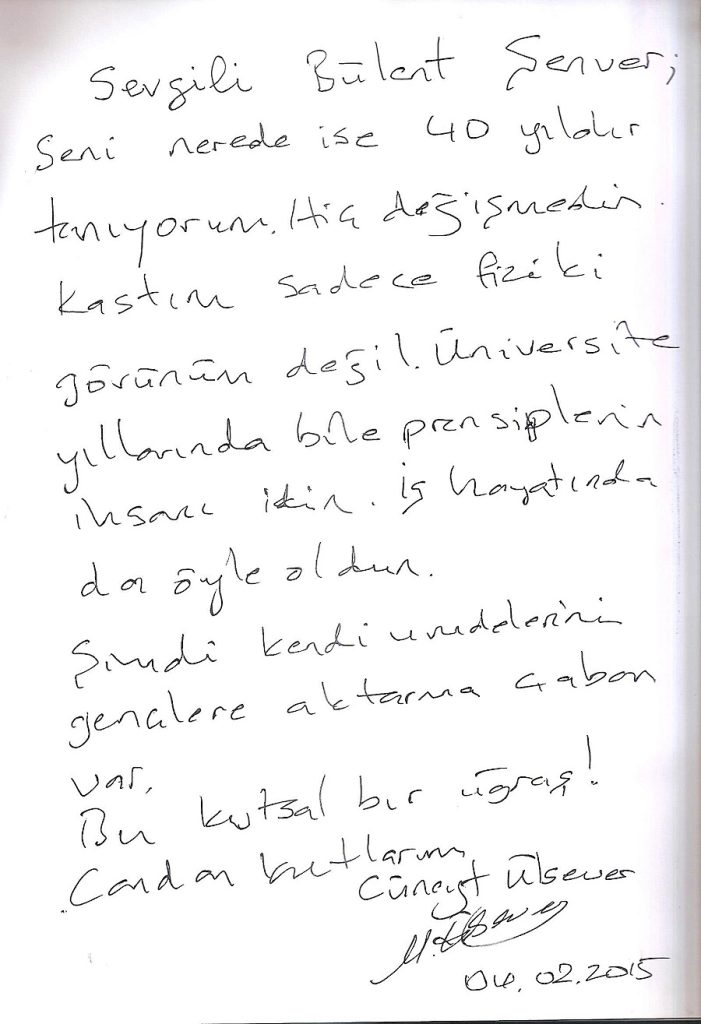 Sevgili Bülent Şenver;
Seni nerede ise 40 yıldır
tanıyorum. Hiç değişmedin.
Kastım sadece fiziki
görünüm değil. Üniversite
yıllarında bile prensiplerin
insanı idin. İş hayatında
da öyle oldun.
Şimdi kendi umdelerini
gençlere aktarma çaban
var.
Bu kutsal bir uğraş!
Candan kutlarım
Cüneyt Ülsever
04.02.2015